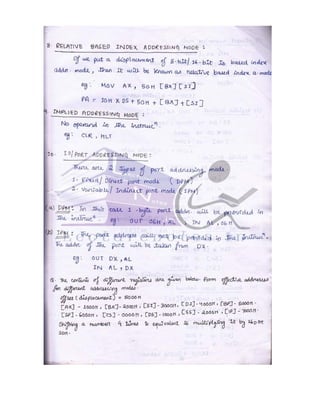 8 RELATIVE BASED INDEX ADDRESSING MODE :
If we put a displacement of 8-bit/16-bit to based index
addr. mode, than it will be known as relative based index a mode
eg: MOV AX, 50H [BX][SI]
PA = 10H X DS + 50H + [BX] + [SI]
9. IMPLIED ADDRESSING MODE :
No operand in the instrucⁿ
eg: CLR, HLT
10. IO/PORT ADDRESSING MODE :
There are 2 types of port addressing mode
1- Fixed/ Direct port mode (DPM)
2- Variable/ Indirect port mode (IPM)
(a) DPM : In this case 1-byte port addr. will be provided in
the instrucⁿ eg: OUT 06H, AL IN AL, 06H
(b) IPM : The port address will not be provided in the instrucⁿ.
The addr. of the port will be taken from DX.
eg: OUT DX, AL
IN AL, DX
Q. The contents of different registers are given below. Form effective addresses
for different addressing modes.
offset (displacement) = 5000H
[AX] - 1000H, [BX] - 2000H, [SI] - 3000H, [DI] - 4000H, [BP] - 5000H
[SP] - 6000H, [CS] - 0000H, [DS] - 1000H, [SS] - 2000H, [IP] - 7000H
Shifting a number 4 times is equivalent to multiplying it by 16D or
10H.